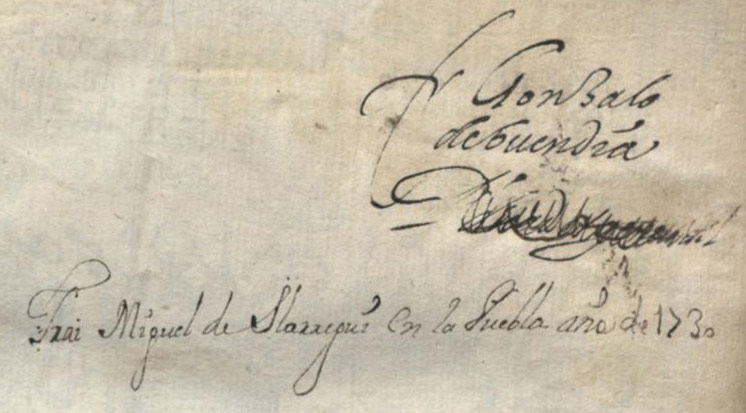 Gonzalo
debuendía
Frai Miguel de Ilarregui en la Puebla año de 1730